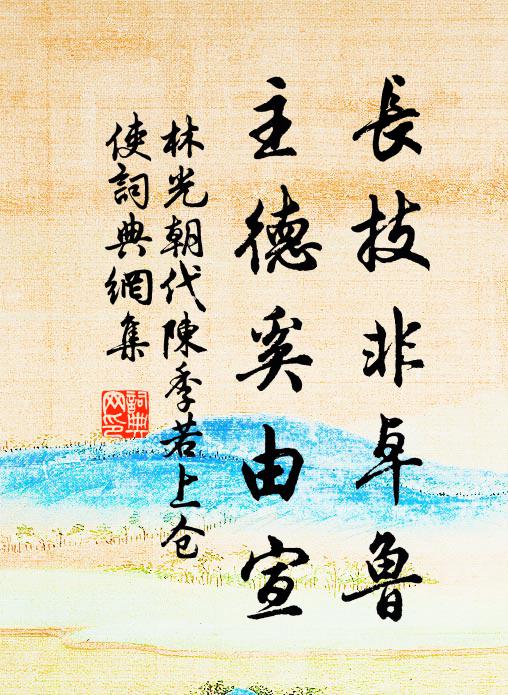 長技非卓魯
主德奚由宣
林光朝代陳季若上仓
使詞典網集
詞典
网印